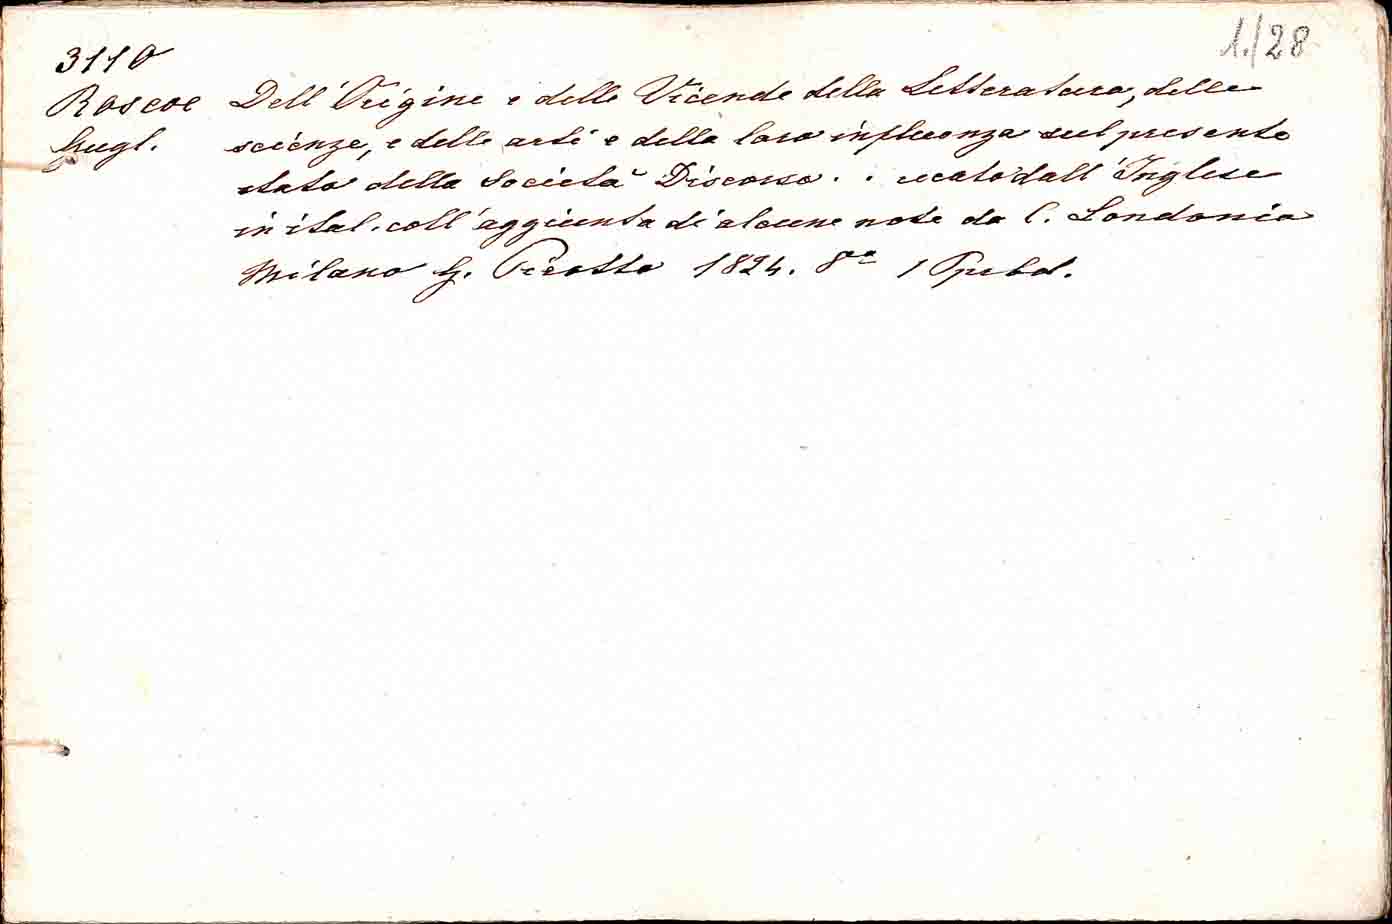 1./28
3110
Roscoe Dell'Origine e delle Vicende della Letteratura, delle
Gugl. scienze, e delle arti e della loro influenza sul presente
stato della Società Discorso . . recato dall'Inglese
in ital. coll'aggiunta di alcune note da C. Londonio
Milano G. Pirotta 1824. 8° 1 Pprbd.